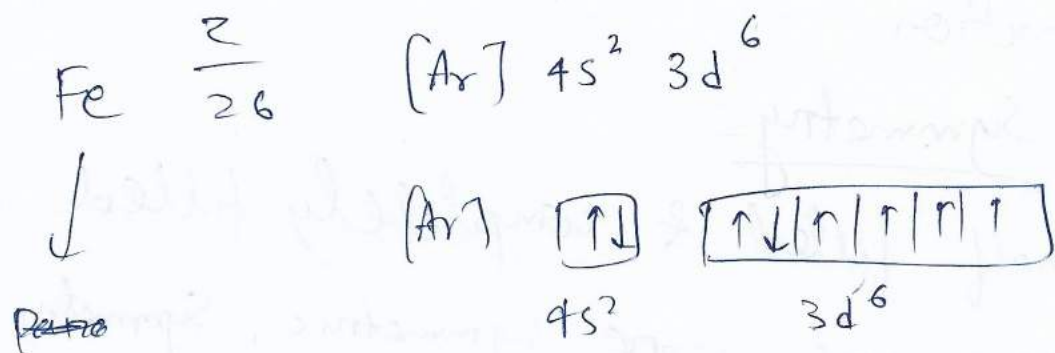 Fe Z/26 [Ar] 4s² 3d⁶
↓ [Ar] ↑↓ ↑↓|↑|↑|↑|↑
4s² 3d⁶